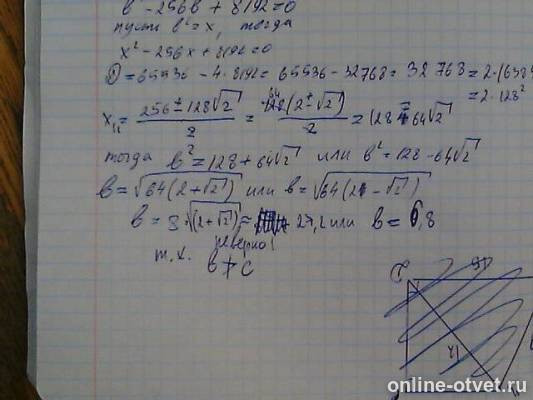 b⁴ - 256b² + 8192 = 0
пусть b² = x, тогда
x² - 256x + 8192 = 0
D = 65536 - 4·8192 = 65536 - 32768 = 32768 = 2·16384
= 2·128²
x₁,₂ = (256 ± 128√2)/2 = 128(2 ± √2)/2 = 128 ± 64√2
тогда b² = 128 + 64√2 или b² = 128 - 64√2
b = √(64(2+√2)) или b = √(64(2-√2))
b = 8·√(2+√2) ≈ 27,2 или b = 6,8
неверно!
т.к. b ≠ c
C
online-otvet.ru